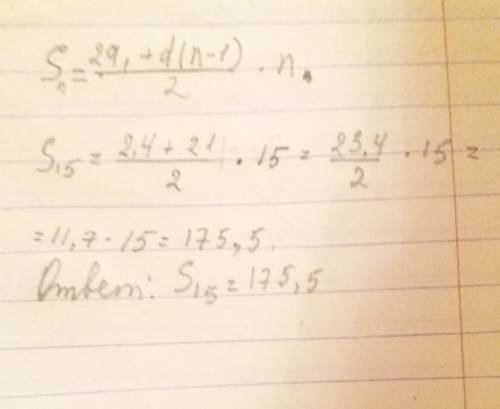 Sₙ = (2a₁ + d(n-1))/2 · n.
S₁₅ = (2,4 + 21)/2 · 15 = 23,4/2 · 15 =
= 11,7 · 15 = 175,5.
Ответ: S₁₅ = 175,5